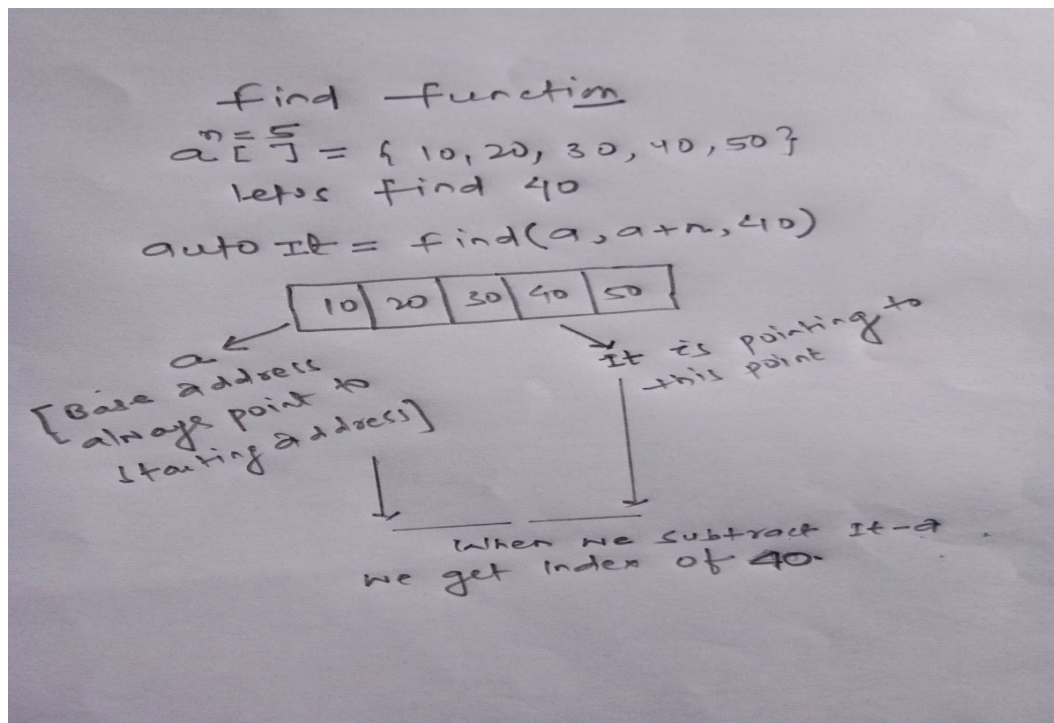 find function
n = 5
a[ ] = { 10, 20, 30, 40, 50 }
let's find 40
auto It = find(a, a+n, 40)
10 20 30 40 50
a
[Base address
always point to
starting address]
It is pointing to
this point
When we subtract It-a
we get index of 40.